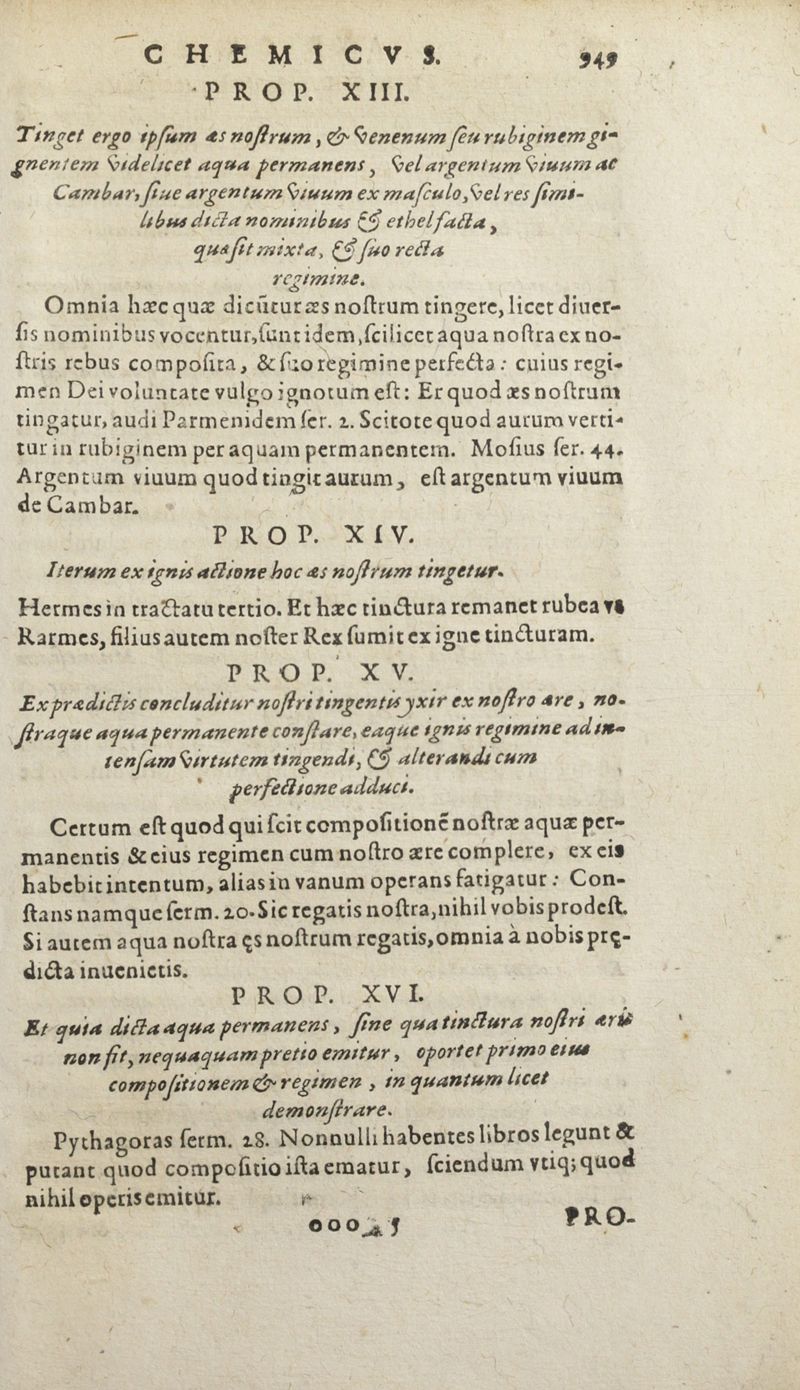 CHEMICVS. 949
PROP. XIII.
Tinget ergo ipſum æs noſtrum, & venenum ſeu rubiginem gi-
gnentem videlicet aqua permanens, vel argentum viuum ac
Cambar, ſiue argentum viuum ex maſculo, vel res ſimi-
libus dicta nominibus & ethelfacta,
quæ ſit mixta, & ſuo recta
regimine.
Omnia hæc quæ dicūtur æs noſtrum tingere, licet diuer-
ſis nominibus vocentur, ſunt idem, ſcilicet aqua noſtra ex no-
ſtris rebus compoſita, & ſuo regimine perfecta: cuius regi-
men Dei voluntate vulgo ignotum eſt: Er quod æs noſtrum
tingatur, audi Parmenidem ſer. 2. Scitote quod aurum verti-
tur in rubiginem per aquam permanentem. Moſius ſer. 44.
Argentum viuum quod tingit aurum, eſt argentum viuum
de Cambar.
PROP. XIV.
Iterum ex ignis actione hoc æs noſtrum tingetur.
Hermes in tractatu tertio. Et hæc tinctura remanet rubea vt
Rarmes, filius autem noſter Rex ſumit ex igne tincturam.
PROP. XV.
Ex prædictis concluditur noſtri tingentis yxir ex noſtro ære, no-
ſtraque aqua permanente conſtare, eaque ignis regimine ad in-
tenſam virtutem tingendi, & alterandi cum
perfectione adduci.
Certum eſt quod qui ſcit compoſitionē noſtræ aquæ per-
manentis & eius regimen cum noſtro ære complere, ex eis
habebit intentum, alias in vanum operans fatigatur: Con-
ſtans namque ſerm. 20. Sic regatis noſtra, nihil vobis prodeſt.
Si autem aqua noſtra ęs noſtrum regatis, omnia à nobis prę-
dicta inuenietis.
PROP. XVI.
Et quia dicta aqua permanens, ſine qua tinctura noſtri æris
non fit, nequaquam pretio emitur, oportet primo eius
compoſitionem & regimen, in quantum licet
demonſtrare.
Pythagoras ſerm. 28. Nonnulli habentes libros legunt &
putant quod compoſitio iſta ematur, ſciendum vtiq; quod
nihil operis emitur.
ooo 5 PRO-